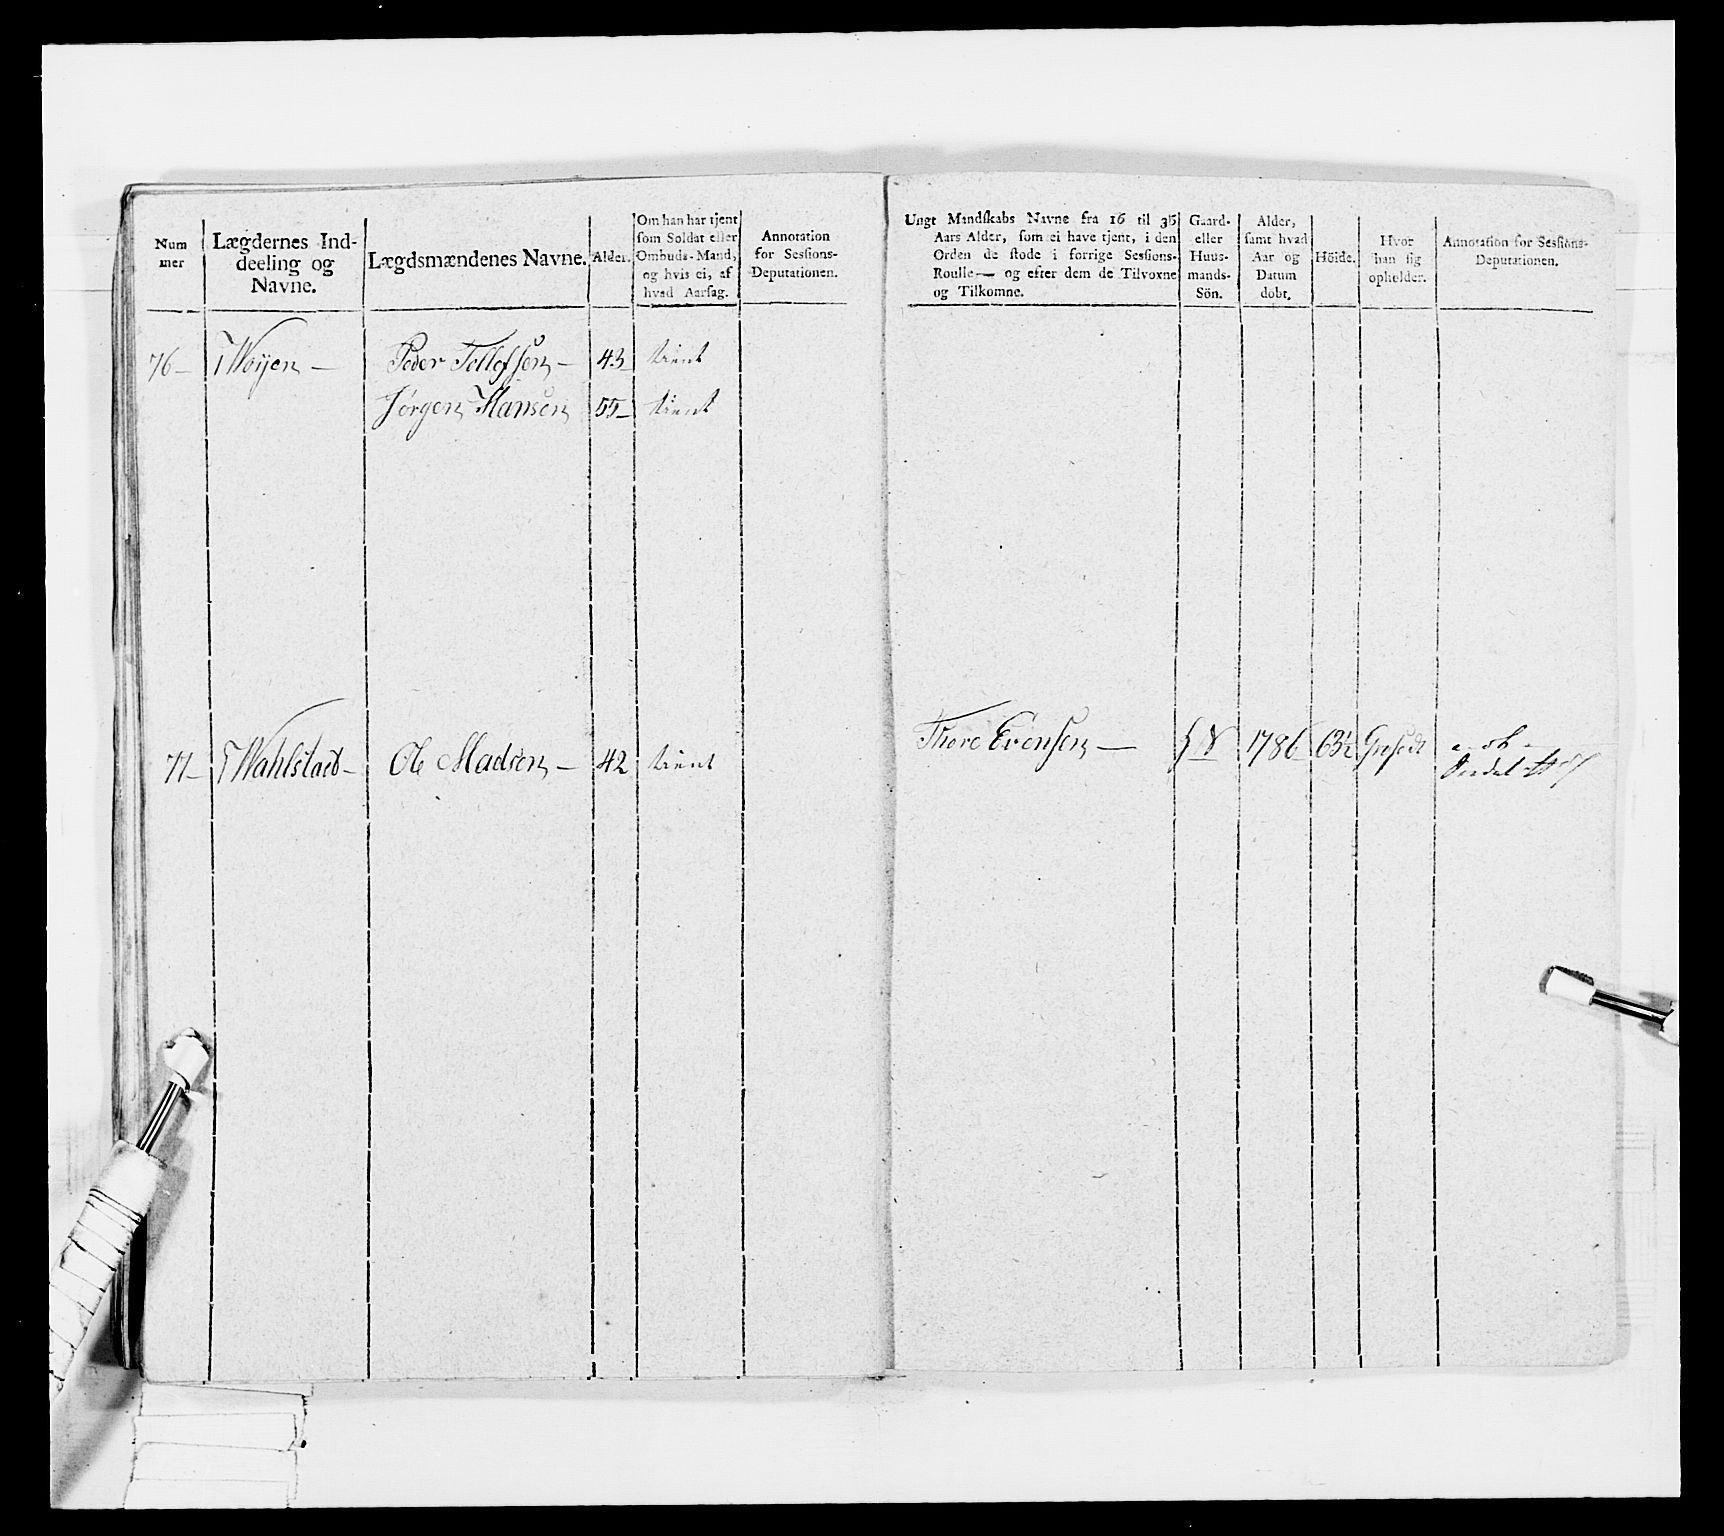 Num
mer
Lægdernes Ind-
deeling og
Navne.
Lægdsmændenes Navne.
Alder.
Om han har tjent
som Soldat eller
Ombuds-Mand,
og hvis ei, af
hvad Aarsag.
Annotation
for Sessions-
Deputationen.
76 Woyen Peder Tollefsen 43 tient
Jörgen Hansen 55 tient
77 Wahlstad Ole Madsen 42 tient
Ungt Mandskabs Navne fra 16 til 36
Aars Alder, som ei have tjent, i den
Orden de stode i forrige Sessions-
Roulle— og efter dem de Tilvoxne
og Tilkomne.
Gaard-
eller
Huus-
mands-
Sön.
Alder,
samt hvad
Aar og
Datum
döbt.
Höide.
Hvor
han sig
opholder.
Annotation for Sessions-
Deputationen.
Thore Evensen 1786 63½